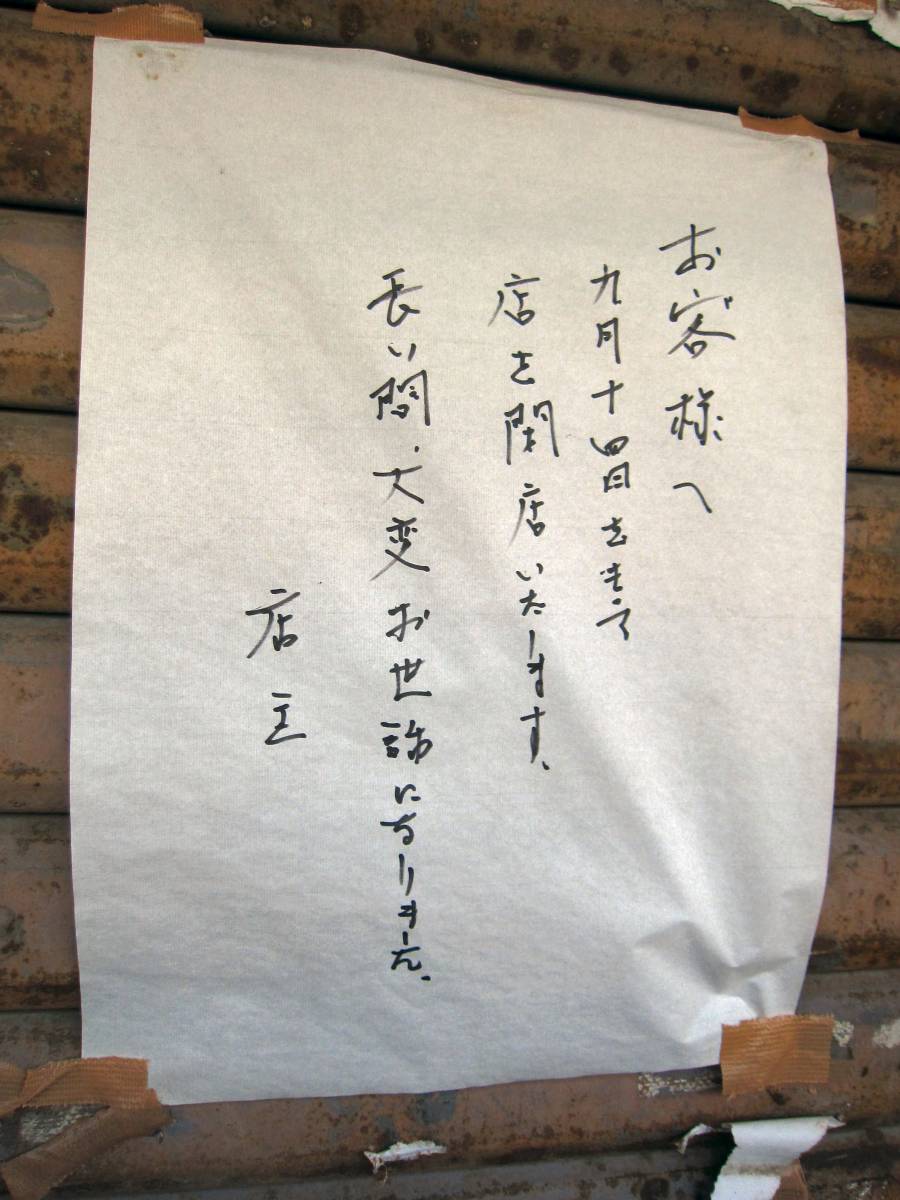 お客様へ
九月十四日をもって
店を閉店いたします。
長い間、大変お世話になりました。
店主